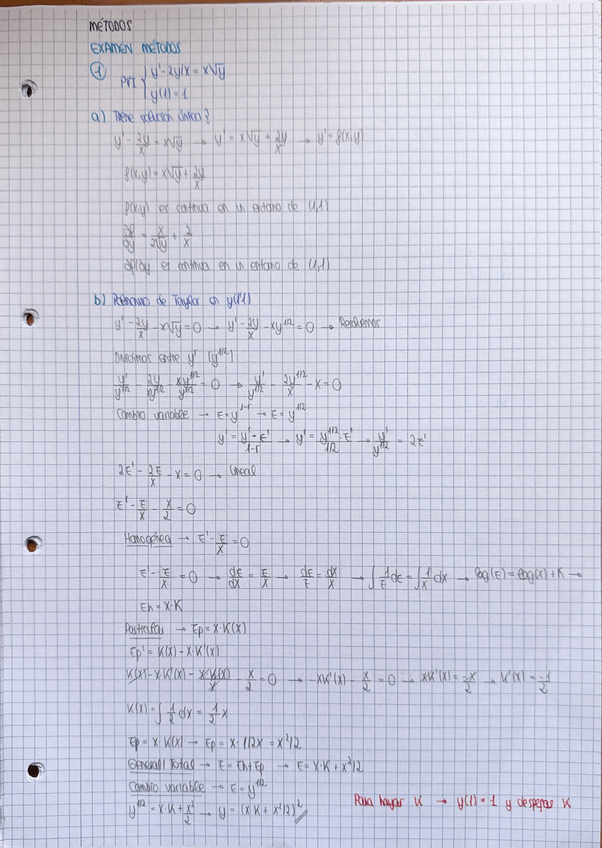 MÉTODOS
EXAMEN MÉTODOS
① PVI { y' - 2y/x = x√y
y(1) = 1
a) Tiene solución única?
y' - 2y/x = x√y → y' = x√y + 2y/x → y' = f(x,y)
f(x,y) = x√y + 2y/x
f(x,y) es continua en un entorno de (1,1)
∂f/∂y = x/2√y + 2/x
∂f/∂y es continua en un entorno de (1,1)
b) Polinomio de Taylor en y(1)
y' - 2y/x - x√y = 0 → y' - 2y/x - xy^1/2 = 0 → Bernoulli
Dividimos entre y^r (y^1/2)
y'/y^1/2 - 2y/xy^1/2 - xy^1/2/y^1/2 = 0 → y'/y^1/2 - 2y^1/2/x - x = 0
Cambio variable → z = y^1-r → z = y^1/2
y' = y^r · z'/1-r → y' = y^1/2/1/2 · z' → y'/y^1/2 = 2z'
2z' - 2z/x - x = 0 → Lineal
z' - z/x - x/2 = 0
Homogénea → z' - z/x = 0
z' - z/x = 0 → dz/dx = z/x → dz/z = dx/x → ∫1/z dz = ∫1/x dx → log(z) = log(x) + K →
zh = x·K
Particular → zp = x·K(x)
zp' = K(x) - x·K'(x)
K(x) - x·K'(x) - x·K(x)/x - x/2 = 0 → -xK'(x) - x/2 = 0 → xK'(x) = -x/2 → K'(x) = -1/2
K(x) = ∫1/2 dx = 1/2 x
zp = x·K(x) → zp = x·1/2x = x²/2
General/Total → z = zh + zp → z = x·K + x²/2
Cambio variable → z = y^1/2
y^1/2 = x·K + x²/2 → y = (xK + x²/2)²
Para hayar K → y(1) = 1 y despejas K